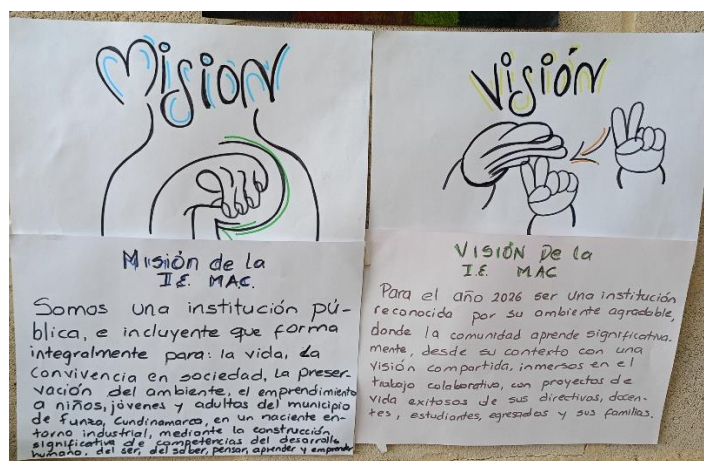 Misión
Misión de la
I.E. MAC.
Somos una institución pú-
blica, e incluyente que forma
integralmente para: la vida, la
convivencia en sociedad, la preser-
vación del ambiente, el emprendimiento
a niños, jóvenes y adultas del municipio
de Funza, Cundinamarca, en un naciente en-
torno industrial, mediante la construcción
significativa de competencias del desarrollo
humano, del ser, del saber, pensar, aprender y emprender
Visión
VISIÓN De la
I.E. MAC
Para el año 2026 ser una institución
reconocida por su ambiente agradable,
donde la comunidad aprende significativa-
mente, desde su contexto con una
visión compartida, inmersos en el
trabajo colaborativo, con proyectos de
vida exitosos de sus directivas, docen-
tes, estudiantes, egresados y sus familias.